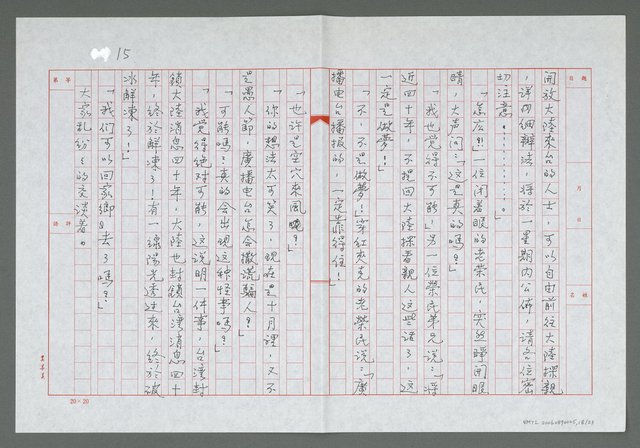 15
題目
月 日
姓名
開放大陸來台的人士,可以自由前往大陸探親
,詳細辦法,將於一星期內公佈,請各位密
切注意。…………」
「怎広?」一位閉着眼的老榮民,突然睜開眼
睛,大声问:「這是真的嗎?」
「我也覚得不可能」另一位榮民弟兄说:「将
近四十年,不提回大陸探看親人这些话了,这
一定是做夢!」
「不,不是做夢!」穿紅夹克的老榮民说:「廣
播电台播报的,一定靠得住!」
「也許是空穴來風呢?」
「你的想法太可笑了,現在是十月裡,又不
是愚人節,廣播电台怎会撒谎騙人?」
「可能嗎?真的会出現这种怪事嗎?」
「我覚得绝对可能,这说明一件事,台湾封
鎖大陸消息四十年,大陸也封鎖台湾消息四十
年,終於解凍了!有一線陽光透进來,終於破
冰解凍了!」
「我们可以回家鄉去了嗎?」
大家乱紛紛的交谈着。
第 年
評語
20×20